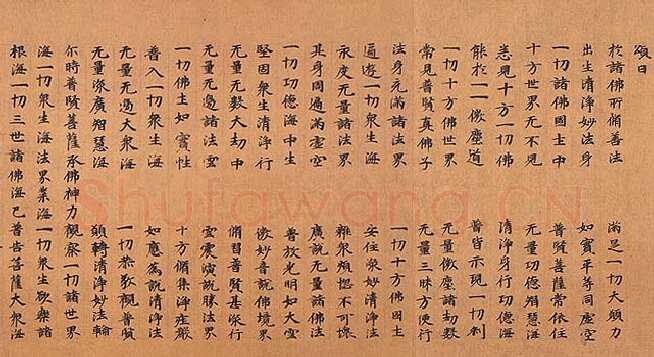 頌曰
於諸佛所修善法 滿足一切大願力
出生清淨妙法身 如實平等同虛空
一切諸佛國土中 普賢菩薩常依住
十方世界无不見 无量功德智慧海
悉見十方一切佛 清淨身行功德海
能於一一微塵道 普皆示現一切剎
一切十方佛世界 无量微塵諸劫數
常見普賢真佛子 无量三昧方便行
法身充滿諸法界 一切十方佛國土
遍遊一切衆生海 安住衆妙清淨法
永度无量諸法界 雜衆煩惱不可壞
其身周遍滿虛空 廣說无量諸佛法
一切功德海中生 普放光明如大雲
堅固衆生清淨行 微妙音說佛境界
无量无數大劫中 修習普賢甚深行
无量无邊諸法雲 雷震演說勝法界
一切佛土如實性 十方修集淨莊嚴
普入一切衆生海 如應為說清淨法
无量无邊大衆海 一切恭敬觀普賢
无量深廣智慧海 願轉清淨妙法輪
尓時普賢菩薩承佛神力觀察一切諸世界
海一切衆生海法界業海一切衆生欲樂諸
根海一切三世諸佛海已普告菩薩大衆海
Shufawang.CN